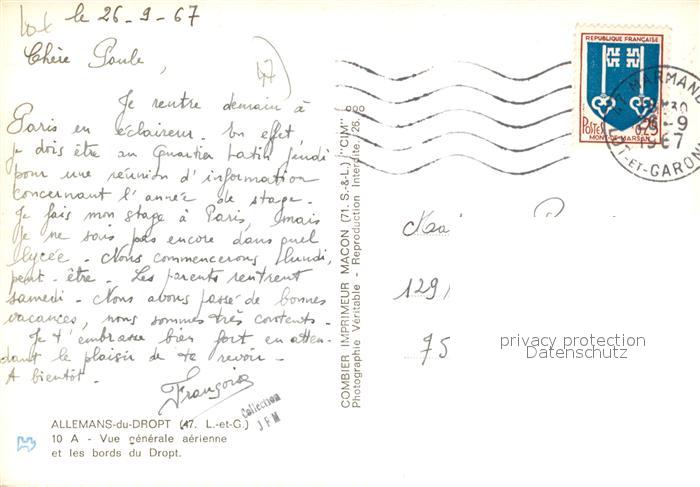 Lot
le 26-9-67
Chère Poule,
47
Je rentre demain à
Paris en éclaireur. En effet
je dois être au Quartier Latin jeudi
pour une réunion d'information
concernant l'année de stage.
Je fais mon stage à Paris, mais
je ne sais pas encore dans quel
lycée. Nous commencerons lundi,
peut-être. Les parents rentrent
samedi. Nous avons passé de bonnes
vacances, nous sommes très contents.
Je t'embrasse bien fort en atten-
dant le plaisir de te revoir.
A bientôt.
Françoise
Collection
J F M
ALLEMANS-du-DROPT (47. L.-et-G.)
10 A - Vue générale aérienne
et les bords du Dropt.
COMBIER IMPRIMEUR MACON (71. S.-&-L.) "CIM"
Photographie Véritable - Reproduction Interdite
REPUBLIQUE FRANÇAISE
POSTES 0,25
MONT-DE-MARSAN
MARMANDE
26-9
1967
LOT-ET-GARONNE
129,
75
privacy protection
Datenschutz